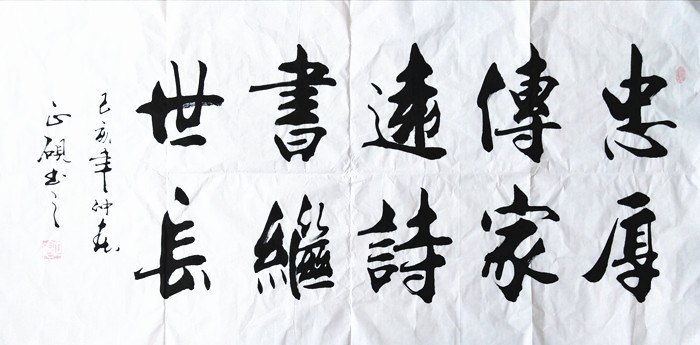 忠厚
傳家
遠詩
書繼
世長
己亥年仲春
正硯書之